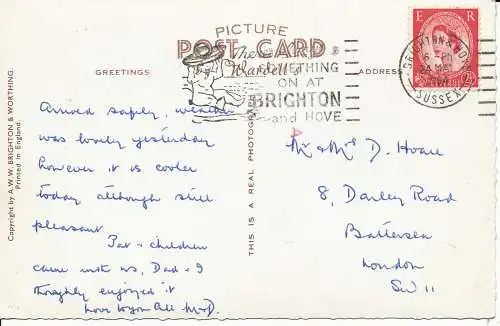 PICTURE
POST CARD
GREETINGS
ADDRESS
There's always
SOMETHING
ON AT
BRIGHTON
and HOVE
E R
BRIGHTON & HOVE
SUSSEX
Arrived safely, weather
was lovely yesterday
however it is cooler
today although still
pleasant
Pat & children
came with us, Dad & I
thoroghly enjoyed it
Love to you all M & D.
Mr & Mrs D. Hoare
8, Danley Road
Battersea
London
SW 11
Copyright by A.W.W. BRIGHTON & WORTHING.
Printed in England.
THIS IS A REAL PHOTOGRAPH